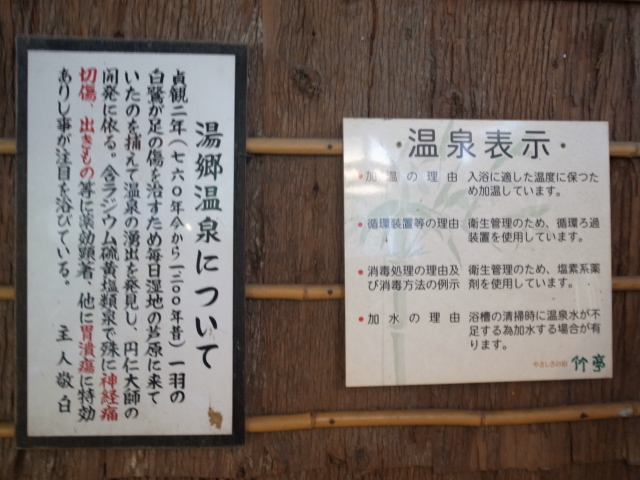 湯郷温泉について
貞観二年（七六〇年今から一二〇〇年昔）一羽の
白鷺が足の傷を治すため毎日湿地の芦原に来て
いたのを捕えて温泉の湧出を発見し、円仁大師の
開発に依る。含ラジウム硫黄塩類泉で殊に神経痛
切傷、出きもの等に薬効顕著、他に胃潰瘍に特効
ありし事が注目を浴びている。 主人敬白
・温泉表示・
・加温の理由 入浴に適した温度に保つた
め加温しています。
・循環装置等の理由 衛生管理のため、循環ろ過
装置を使用しています。
・消毒処理の理由及 衛生管理のため、塩素系薬
び消毒方法の例示 剤を使用しています。
・加水の理由 浴槽の清掃時に温泉水が不
足する為加水する場合が有
ります。
やさしさの宿 竹亭